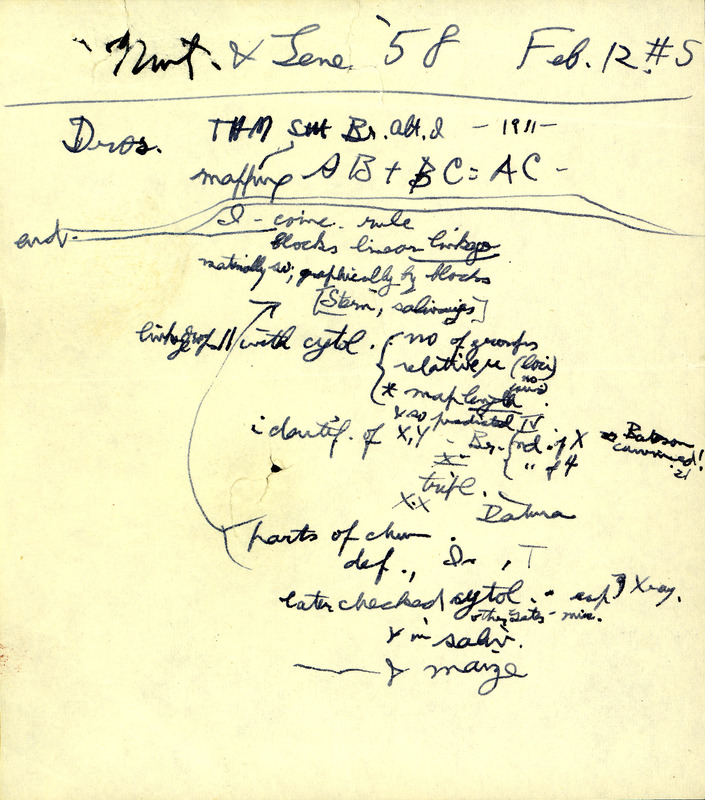 Mut. & Gene '58 Feb. 12 #5
Dros. THM Stt Br. Alt. I - 1911 -
mapping AB + BC = AC -
I - coinc. rule
blocks linear linkage
graphically by blocks
[Stern, salivaries]
linkage with cytol. no of groups
relative (loci)
* map length
& so predicted IV
identif. of X, Y - Br. nd. of X Bateson convinced! '21
" of 4
tripl.
X.X Datura
parts of chrom.
def., In, T
later checked cytol. - esp X ray.
& in saliv.
& maize